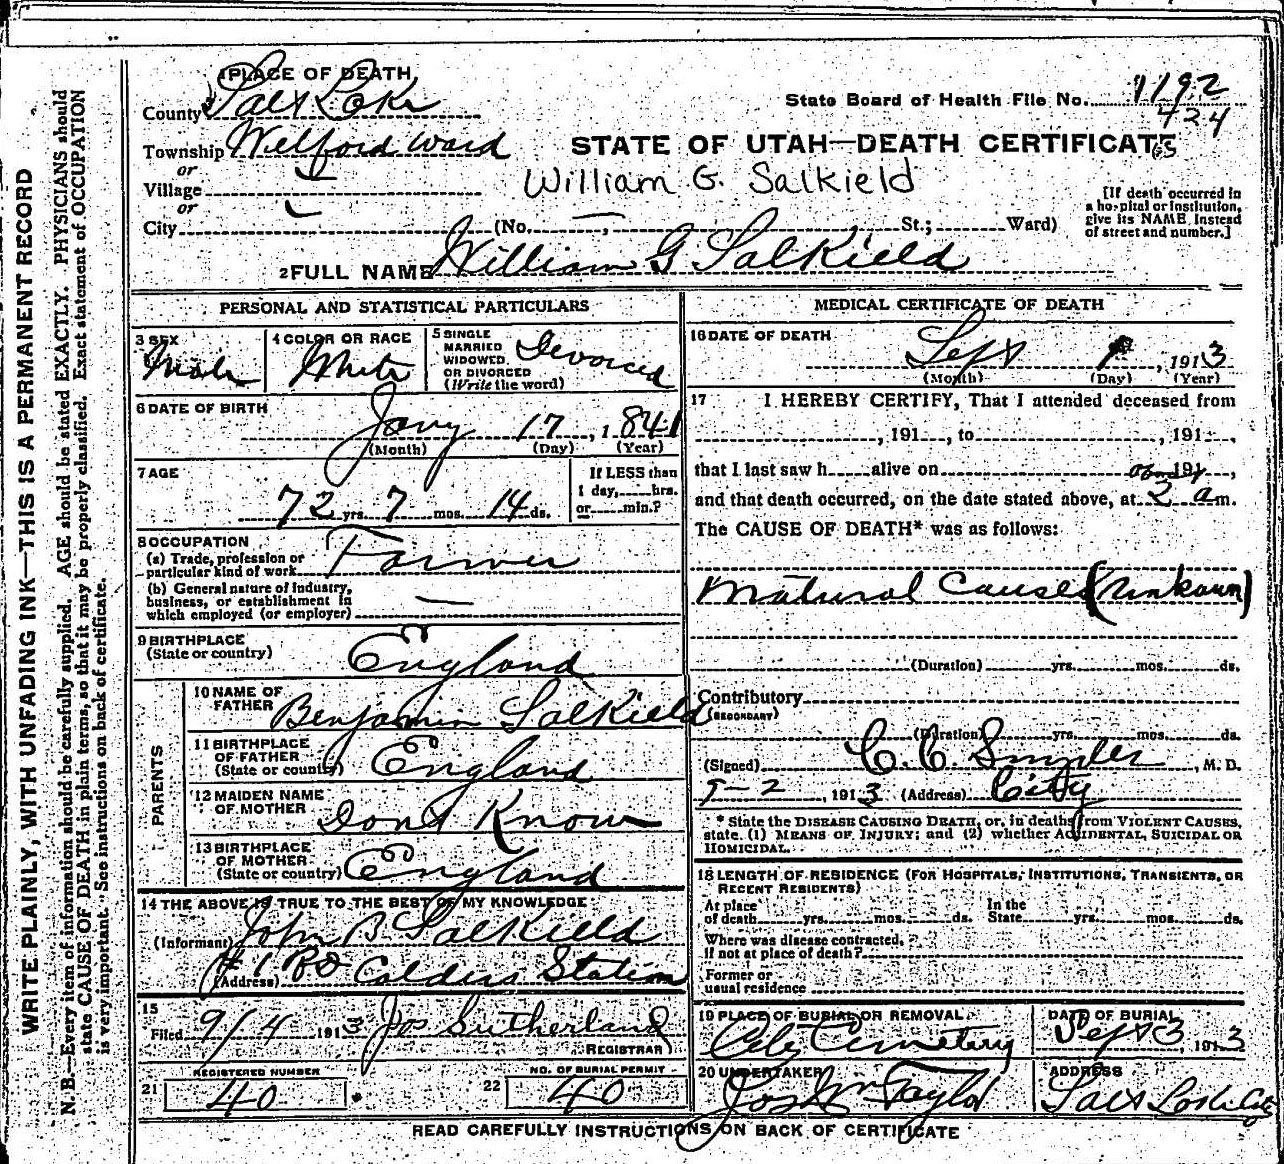 WRITE PLAINLY, WITH UNFADING INK—THIS IS A PERMANENT RECORD
N. B.—Every item of information should be carefully supplied. AGE should be stated EXACTLY. PHYSICIANS should
state CAUSE OF DEATH in plain terms, so that it may be properly classified. Exact statement of OCCUPATION
is very important. See instructions on back of certificate.
1 PLACE OF DEATH
County Salt Lake
State Board of Health File No. 1192
424
Township Wilford Ward
STATE OF UTAH—DEATH CERTIFICATE
or
Village
William G. Salkield
or
City (No. St.; Ward)
[If death occurred in
a hospital or institution,
give its NAME instead
of street and number.]
2 FULL NAME William G Salkield
PERSONAL AND STATISTICAL PARTICULARS
3 SEX
Male
4 COLOR OR RACE
White
5 SINGLE
MARRIED
WIDOWED
OR DIVORCED
(Write the word)
Divorced
6 DATE OF BIRTH
Jany 17, 1841
(Month) (Day) (Year)
7 AGE
72 yrs. 7 mos. 14 ds.
If LESS than
1 day, hrs.
or min.?
8 OCCUPATION
(a) Trade, profession or
particular kind of work Farmer
(b) General nature of industry,
business, or establishment in
which employed (or employer) —
9 BIRTHPLACE
(State or country) England
PARENTS
10 NAME OF
FATHER Benjamin Salkield
11 BIRTHPLACE
OF FATHER
(State or country) England
12 MAIDEN NAME
OF MOTHER Dont Know
13 BIRTHPLACE
OF MOTHER
(State or country) England
14 THE ABOVE IS TRUE TO THE BEST OF MY KNOWLEDGE
(Informant) John B Salkield
(Address) #1 Calders Station
15
Filed 9/4 1913 Jos Sutherland
REGISTRAR
21 REGISTERED NUMBER
40
22 NO. OF BURIAL PERMIT
40
MEDICAL CERTIFICATE OF DEATH
16 DATE OF DEATH
Sept 1, 1913
(Month) (Day) (Year)
17 I HEREBY CERTIFY, That I attended deceased from
, 191 , to , 191 ,
that I last saw h alive on 191 ,
and that death occurred, on the date stated above, at 2 a m.
The CAUSE OF DEATH* was as follows:
Natural Causes (Unknown)
(Duration) yrs. mos. ds.
Contributory
(SECONDARY)
(Duration) yrs. mos. ds.
(Signed) C. C. Snyder, M. D.
9-2, 1913 (Address) City
* State the DISEASE CAUSING DEATH, or, in deaths from VIOLENT CAUSES,
state (1) MEANS OF INJURY; and (2) whether ACCIDENTAL, SUICIDAL OR
HOMICIDAL.
18 LENGTH OF RESIDENCE (FOR HOSPITALS, INSTITUTIONS, TRANSIENTS, OR
RECENT RESIDENTS)
At place
of death yrs. mos. ds.
In the
State yrs. mos. ds.
Where was disease contracted,
If not at place of death?
Former or
usual residence
19 PLACE OF BURIAL OR REMOVAL
City Cemetery
DATE OF BURIAL
Sept 3, 1913
20 UNDERTAKER
Jos Wm Taylor
ADDRESS
Salt Lake City
READ CAREFULLY INSTRUCTIONS ON BACK OF CERTIFICATE